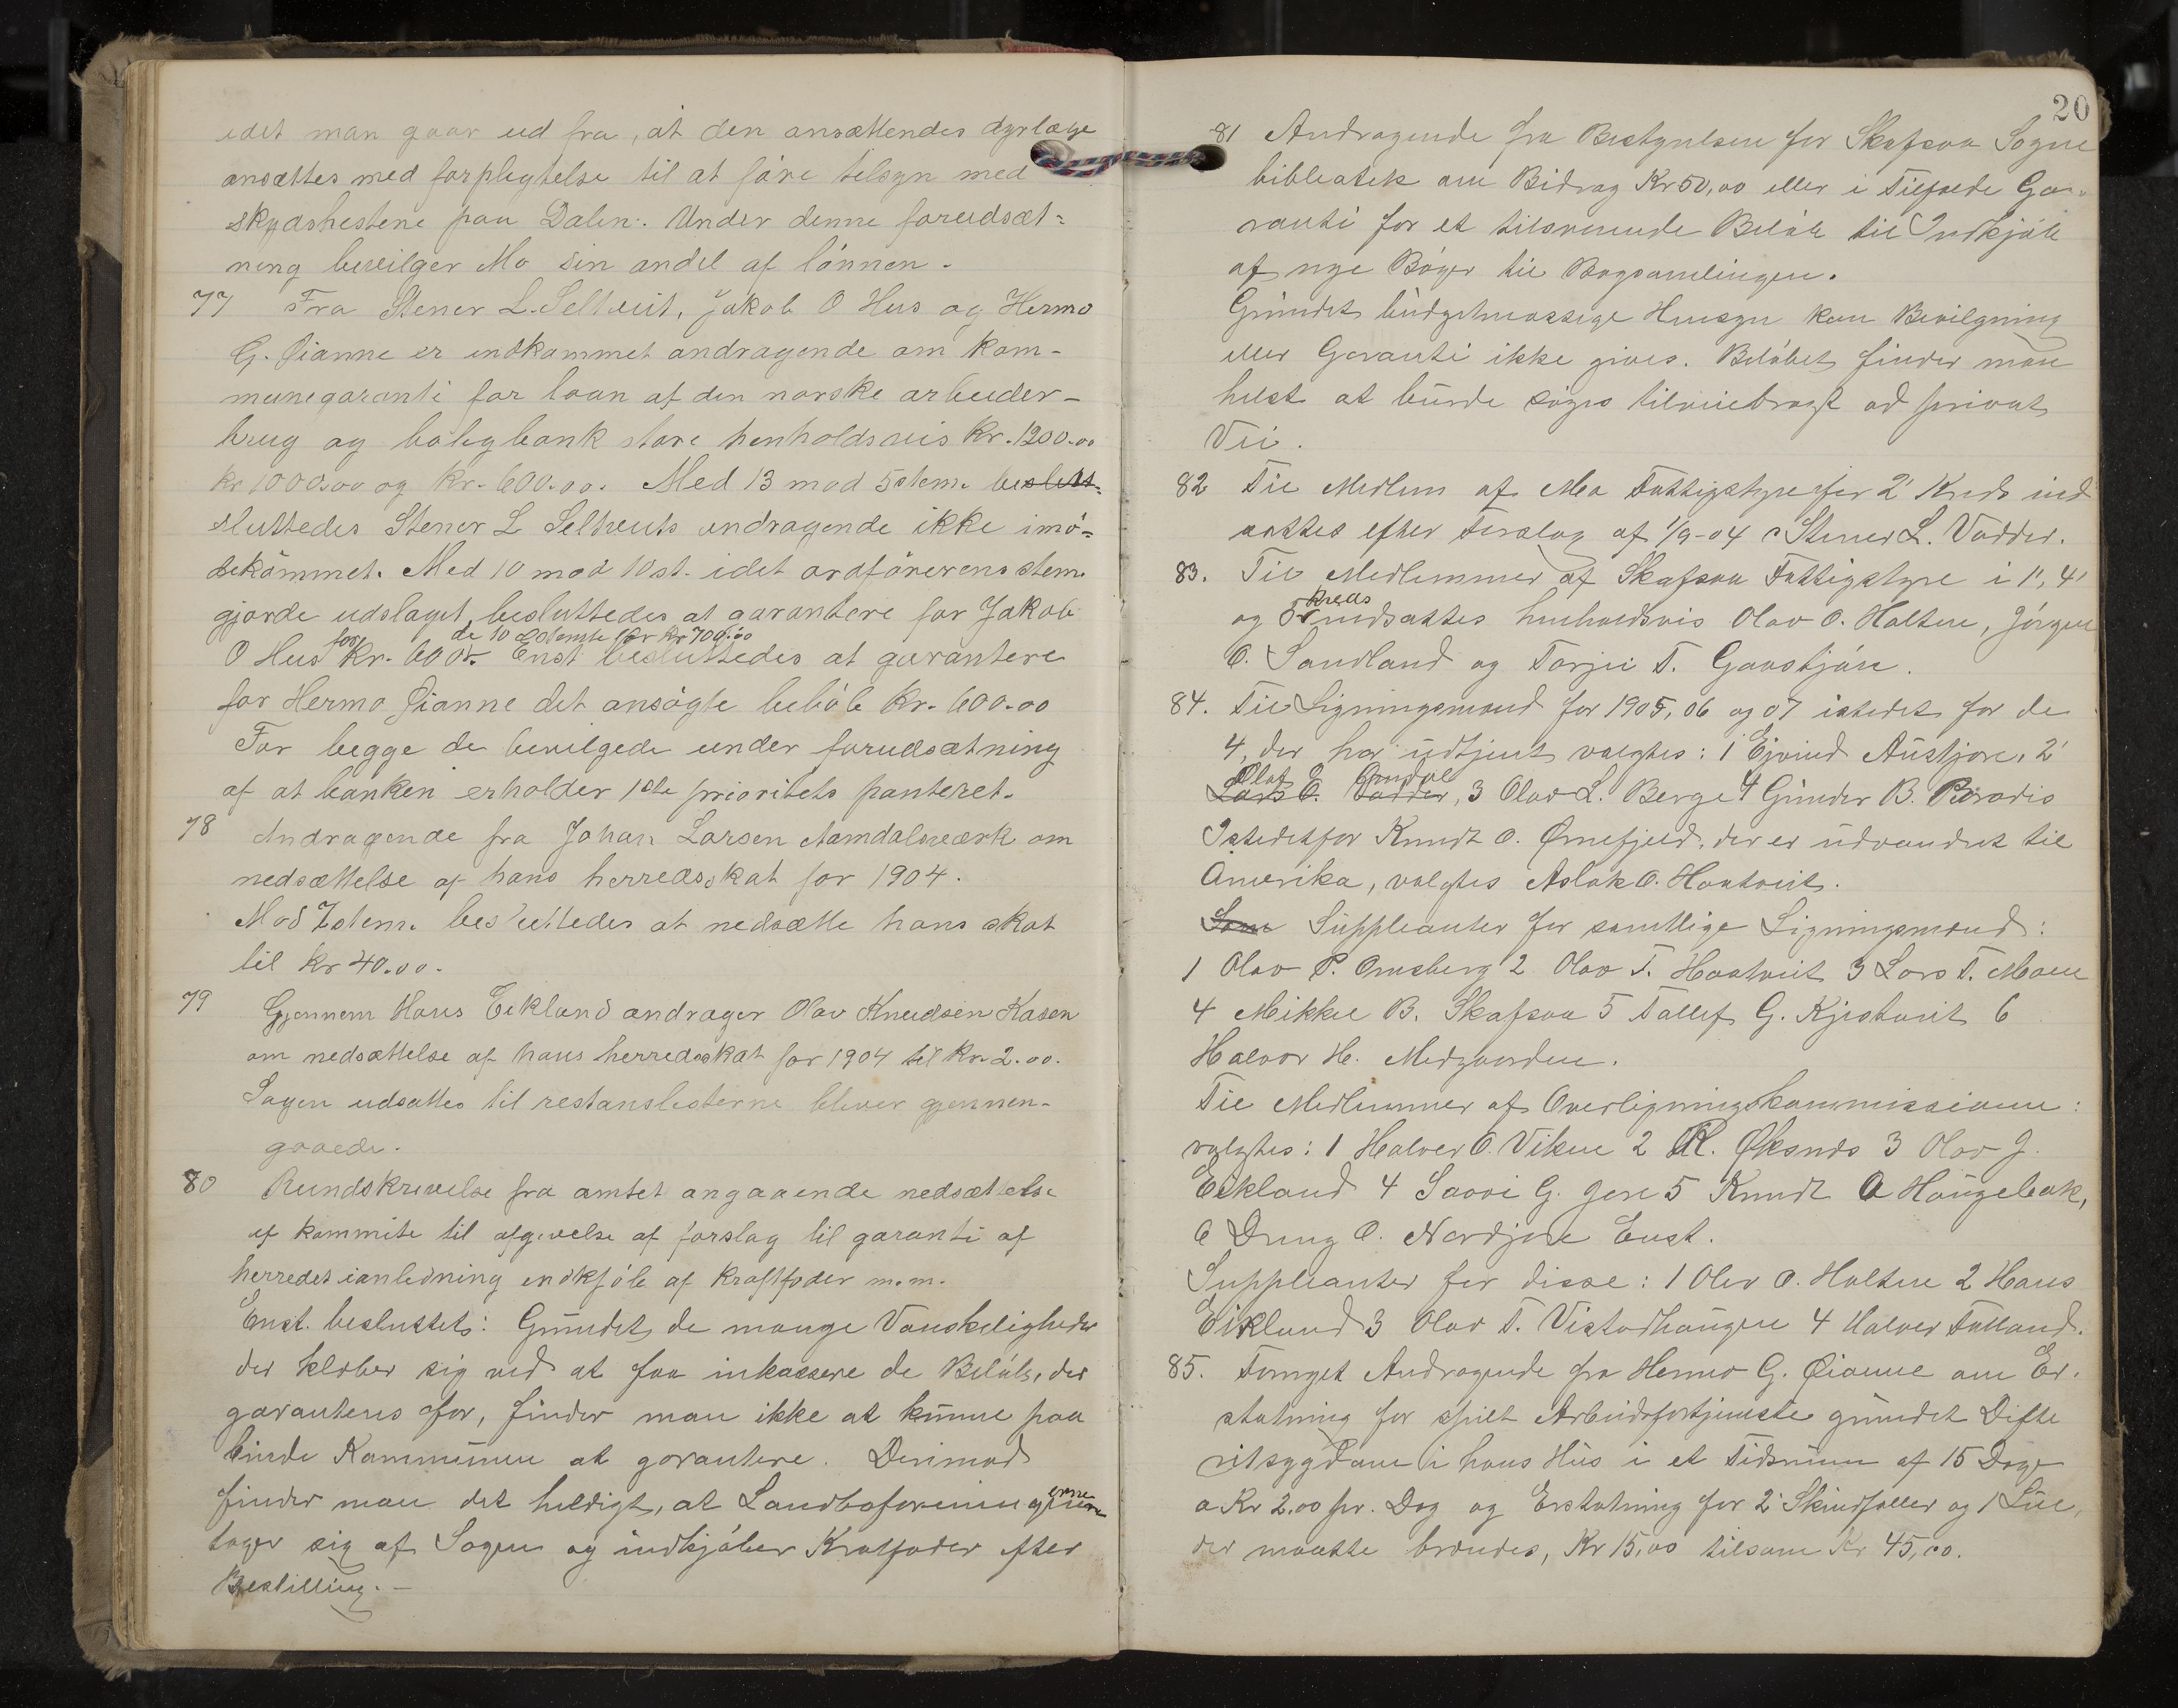 idet man gaar ud fra, at den ansættendes dyrlæge
ansættes med forplegtelse til at føre tilsyn med
skydshestene paa Dalen. Under denne forudsæt=
ning bevilger Mo sin andel af lønnen.
77 Fra Stener L. Seltveit, Jakob O Hus og Hermo
G. Øianne er indkommet andragende om kom-
munegaranti for laan af den norske arbeider-
brug og boligbank store henholdsvis Kr. 1200.00
kr 1000.00 og kr. 600.00. Med 13 mod 5 stem. beslut=
sluttedes Stener L Seltveits andragende ikke imø=
dekommet. Med 10 mod 10 st. idet ordførerens stem.
gjorde udslaget, besluttedes at garantere for Jakob
for de 10 for kr 700.00
O Hus Kr. 600. Enst besluttedes at garantere
for Hermo Øianne det ansøgte beløb kr. 600.00
For begge de bevilgede under forudsætning
af at banken erholder 1ste prioritets panteret.
78 Andragende fra Johan Larsen Aamdalsværk om
nedsættelse af hans herredsskat for 1904.
Mod 7 stem. besluttedes at nedsætte hans skat
til kr 40.00.
79 Gjennem Hans Eikland andrager Olav Knudsen Kasen
om nedsættelse af hans herredsskat for 1904 til kr. 2.00.
Sagen udsattes til restanslisterne bliver gjennem-
gaaede.
80 Rundskrivelse fra amtet angaaende nedsættelse
af kommite til afgivelse af forslag til garanti af
herredet ianledning indkjøb af kraftfoder m.m.
Enst. besluttets: Grundet de mange Vanskeligheder
der kløber sig ved at faa inkassere de Beløb, der
garanteres for, finder man ikke at kunne paa
binde Kommunen at garantere. Derimod
finder man det heldigt, at Landboforeningerne
tager sig af Sagen og indkjøber Kraftfoder efter
Bestilling. —
20
81 Andragende fra Bestyrelsen for Skafsaa Sogne
bibliotek om Bidrag Kr 50,00 eller i Tilfælde Ga-
ranti for et tilsvarende Beløb til Indkjøb
af nye Bøger til Bogsamlingen.
Grundet budgetmæssige Hensyn kan Bevilgning
eller Garanti ikke gives. Beløbet finder man
helst at burde søges tilveiebragt ad privat
Vei.
82 Til Medlem af Mo Fattigstyre for 2' Kreds ind
sattes efter Forslag af 1/9-04 Stener L. Vadder.
83. Til Medlemmer af Skafsaa Fattigstyre i 1', 4'
kreds
og 5' indsattes henholdsvis Olav O. Holten, Jørgen
O. Sandland og Torjei T. Gaastjøn.
84. Til Ligningsmænd for 1905, 06 og 07 istedet for de
4, der har udtjent valgtes: 1 Eivind Austjore, 2'
Olaf Omdal
Lars O. Vadder, 3 Olav L. Berge 4 Gunder B. Paradis
Istedetfor Knudt O. Ørnefjeld, der er udvandret til
Amerika, valgtes Aslak O. Hovtveit.
Som Suppleanter for samtlige Ligningsmænd:
1 Olav P. Omsberg 2 Olav T. Hovtveit 3 Lars T. Moen
4 Mikkel B. Skafsaa 5 Tallef G. Kjistveit 6
Halvor H. Midgaarden.
Til Medlemmer af Overligningskommissionen:
valgtes: 1 Halvor O. Viken 2 R. Øksnes 3 Olav J.
Eikland 4 Saavi G. Jore 5 Knudt O Haugebak,
6 Dreng O. Nordjore Enst.
Suppleanter for disse: 1 Olav O. Holten 2 Hans
Eikland 3 Olav T. Vistadhaugen 4 Halvor Falland.
85. Fornyet Andragende fra Hermo G. Øianne om Er-
statning for spilt Arbeidsfortjeneste grundet Difte
ritsygdom i hans Hus i et Tidsrum af 15 Dage
a Kr 2.00 pr. Dag og Erstatning for 2 Skindfeller og 1 Lue,
der maatte brændes, Kr 15,00 tilsam Kr 45,00.